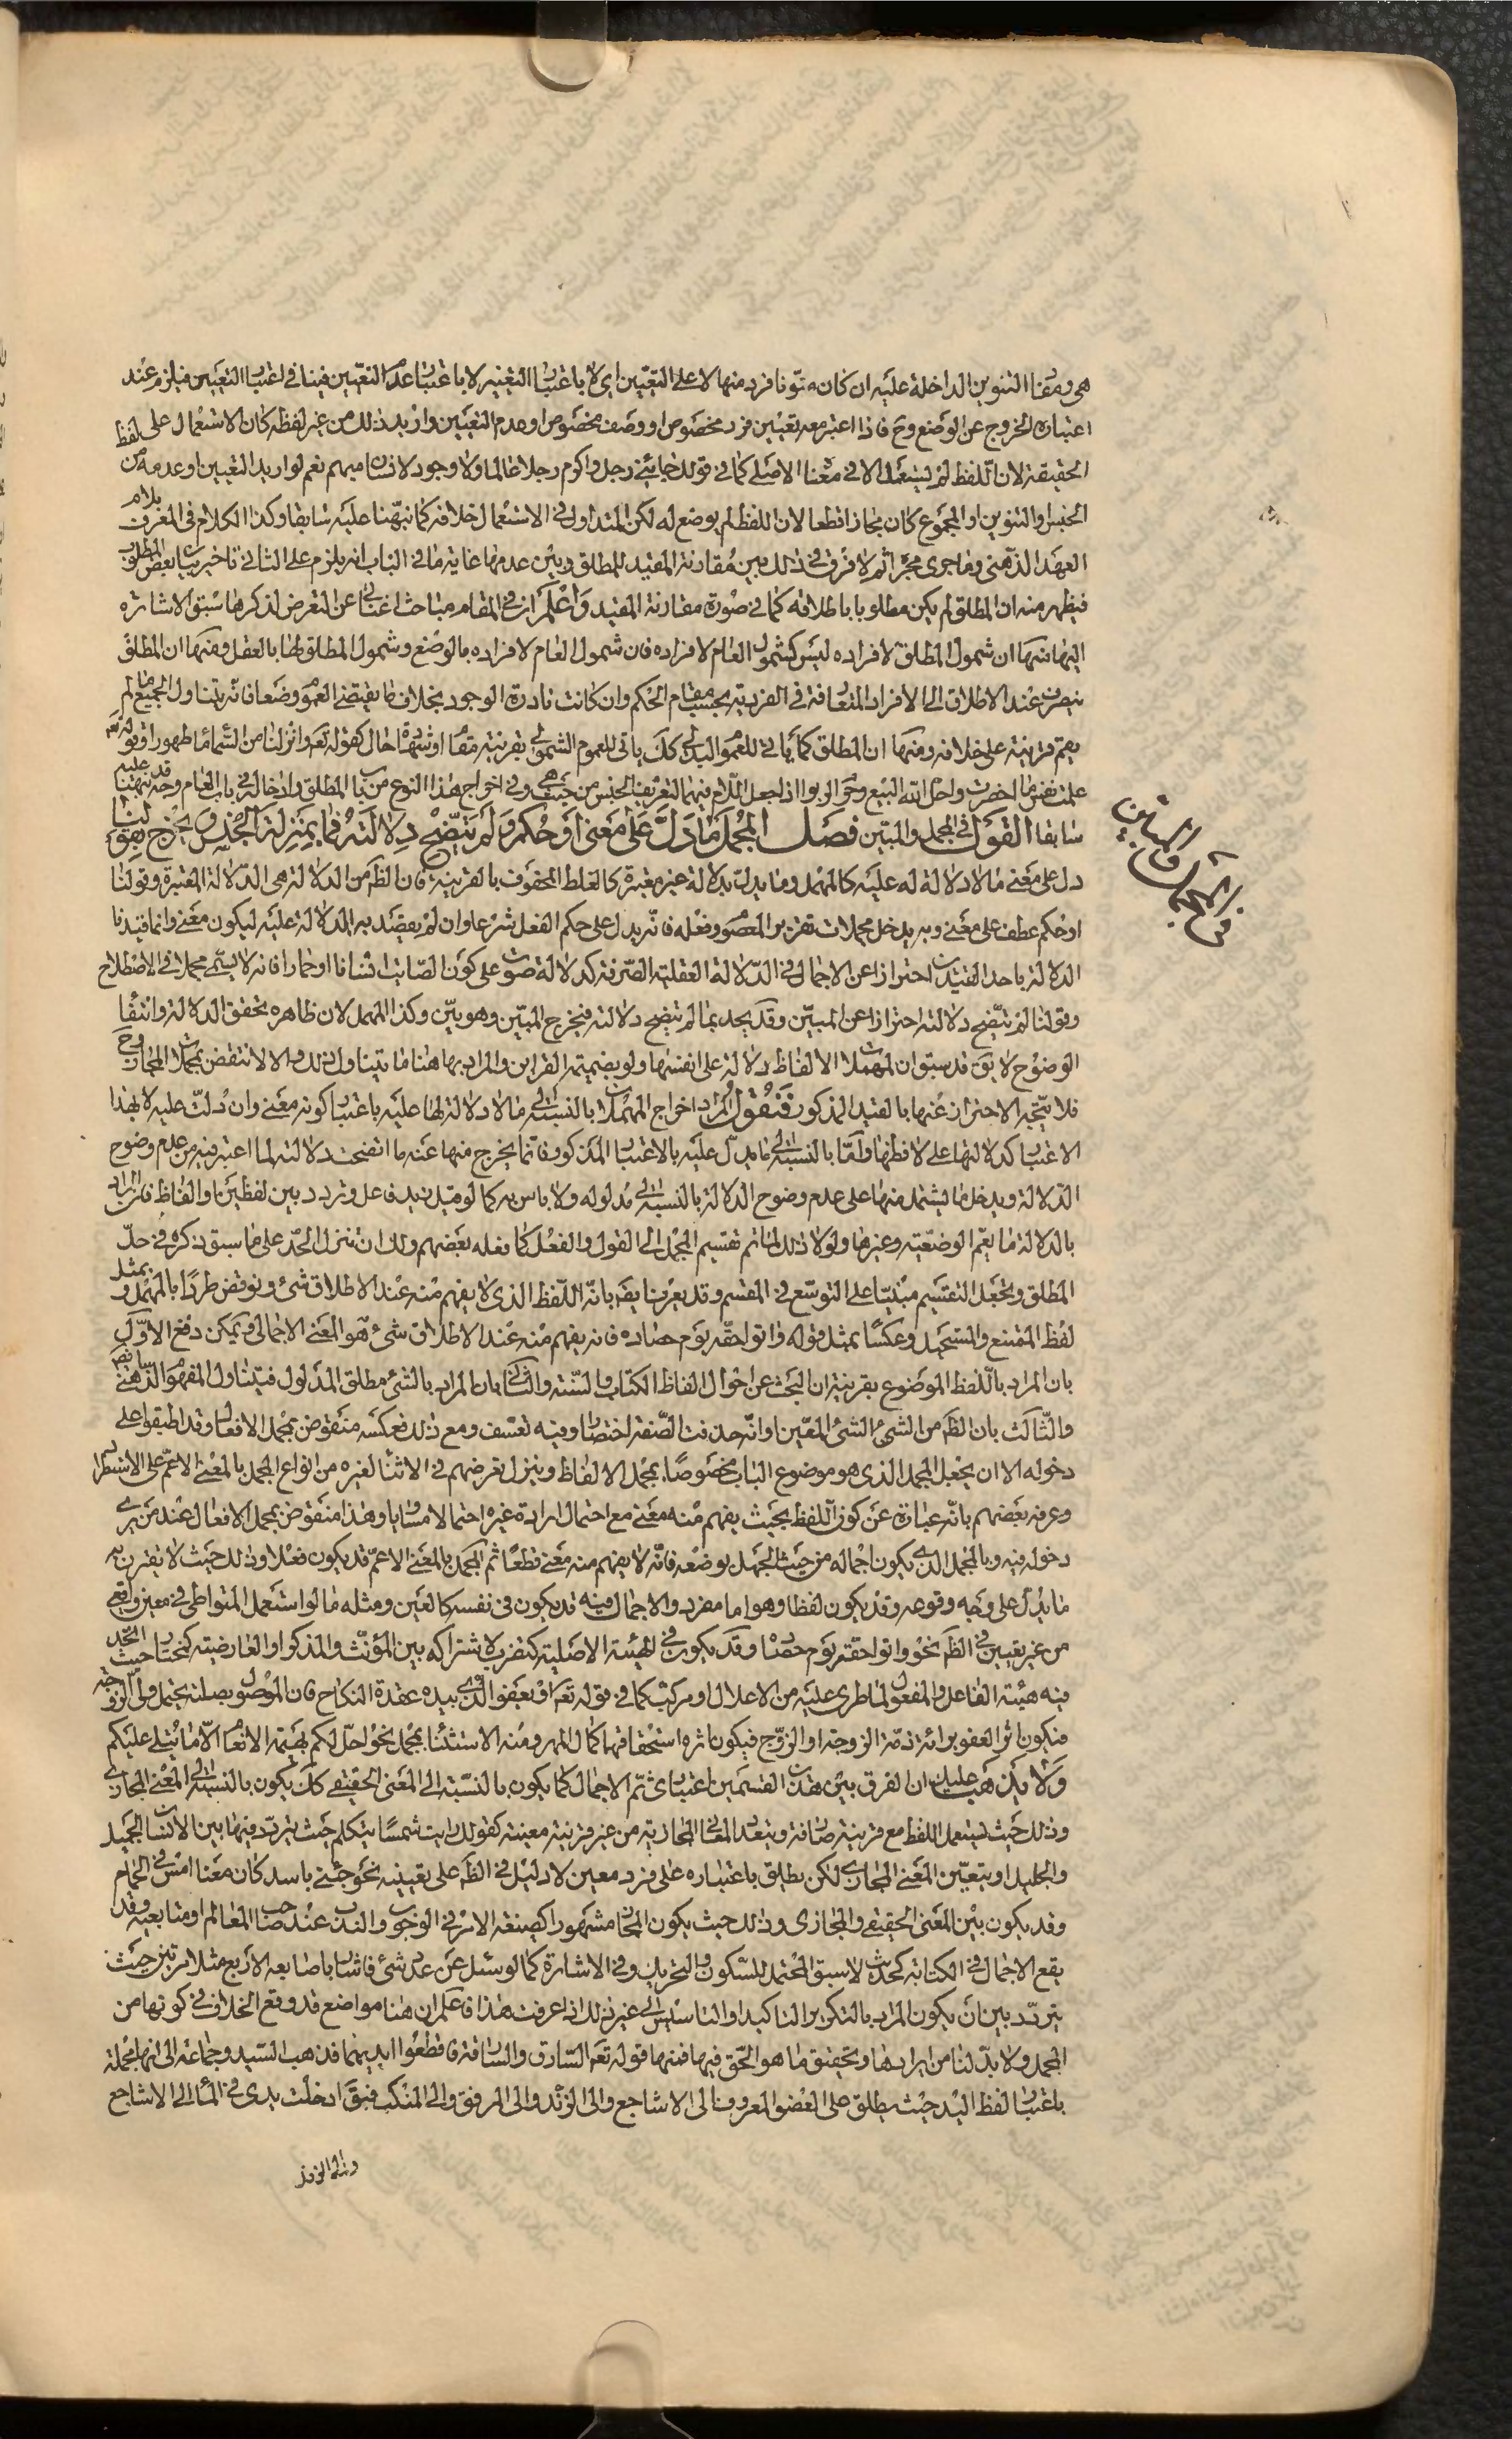 هى ومفا التنوين الداخلة عليه ان كان منونا فرد منها لا على التعيين اى لا باعتبار التعيين لا باعتبار عدم التعيين فينافى اعتبار التعيين فيلزم عند
اعتباره الخروج عن الوضع وح فاذا اعتبر معه تعيين فرد مخصوص او وصف مخصوص او عدم التعيين واريد ذلك من غير لفظه كان الاستعمال على لفظ
الحقيقة لان اللفظ لم يستعمل الا فى معناه الاصلى كما فى قولك جائنى رجل واكرم رجلا عالما ولا وجود لانسان مبهم نعم لو اريد التعيين او عدمه من
الجنس والتنوين او المجموع كان مجازا قطعا لان اللفظ لم يوضع له لكن المتداول فى الاستعمال خلافه كما نبهنا عليه سابقا وكذا الكلام فى المعرف بلام
العهد الذهنى وما جرى مجراه ثم لا فرق فى ذلك بين مقارنة المقيد للمطلق وبين عدمها غاية ما فى الباب انه يلزم على الثانى تاخير بيان بعض المطلوب
فيظهر منه ان المطلق لم يكن مطلوبا باطلاقه كما فى صورة مقارنة المقيد واعلم ان فى المقام مباحث اغنانى عن التعرض لذكرها سبق الاشارة
اليها منها ان شمول المطلق لافراده ليس كشمول العام لافراده فان شمول العام لافراده بالوضع وشمول المطلق لها بالعقل ومنها ان المطلق
ينصرف عند الاطلاق الى الافراد المتعارفة فى الفردية بحسب مقام الحكم وان كانت نادرة الوجود بخلاف ما يقتضى العموم وضعا فانه يتناول الجميع ما لم
يقم قرينة على خلافه ومنها ان المطلق كما ياتى للعموم البدلى كك ياتى للعموم الشمولى بقرينة مقام او شهادة حال كقوله تعالى وانزلنا من السماء ماء طهورا وقوله تعالى
علمت نفس ما احضرت واحل الله البيع وحرم الربوا اذا جعل اللام فيهما لتعريف الجنس من حيث هى وفى اخراج هذا النوع من باب المطلق وادخاله فى باب العام وجه قد نبهنا عليه
سابقا القول فى المجمل والمبين فصل المجمل ما دل على معنى او حكم ولم تتضح دلالته فما بمنزلة الجنس ويخرج بقولنا
دل على معنى ما لا دلالة له عليه كالمهمل وما يدل بدلالة غير معتبرة كالغلط المحفوف بالقرينة فان الظاهر من الدلالة هى الدلالة المعتبرة وقولنا
او حكم عطف على معنى وبه يدخل مجملات تقرير المعصوم وفعله فانه يدل على حكم الفعل شرعا وان لم يقصد به الدلالة عليه ليكون معنى وانما قيدنا
الدلالة باحد القيدين احترازا عن الاجمال فى الدلالة العقلية الصرفة كدلالة صوت على كون الصائت انسانا او حمارا فانه لا يسمى مجملا فى الاصطلاح
وقولنا لم تتضح دلالته احترازا عن المبين وقد يحد بما لم تتضح دلالته فيخرج المبين وهو بين وكذا المهمل لان ظاهره تحقق الدلالة وانتفاء
الوضوح لا يق قد سبق ان لمهملات الالفاظ دلالة على انفسها ولو بضميمة القرائن والمراد بها هنا ما يتناول ذلك والا لانتقض بمجمل المجاز وح
فلا يتجه الاحتراز عنها بالقيد المذكور فنقول المراد اخراج المهملات بالنسبة الى ما لا دلالة لها عليه باعتبار كونه معنى وان دلت عليه لا بهذا
الاعتبار كدلالتها على لافظها واما بالنسبة الى ما يدل عليه بالاعتبار المذكور فانما يخرج منها عنه ما اتضحت دلالته لما اعتبر فيه من عدم وضوح
الدلالة ويدخل ما يشتمل منها على عدم وضوح الدلالة بالنسبة الى مدلوله ولا باس به كما لو قيل زيد فاعل وتردد بين لفظين او الفاظ فان المراد
بالدلالة ما يعم الوضعية وغيرها ولولا ذلك لما تم تقسيم المجمل الى القول والفعل كما فعله بعضهم ولك ان تنزل الحد على ما سبق ذكره فى حد
المطلق وتجعل التقسيم مبنيا على التوسع فى المقسم وقد يعرف ايضا بانه اللفظ الذى لا يفهم منه عند الاطلاق شئ ونوقض طردا بالمهمل وبمثل
لفظ الممتنع والمستحيل وعكسا بمثل قوله واتوا حقه يوم حصاده فانه يفهم منه عند الاطلاق شئ هو المعنى الاجمالى ويمكن دفع الاول
بان المراد باللفظ الموضوع بقرينة ان البحث عن احوال الفاظ الكتاب والسنة والثانى بان المراد بالشئ مطلق المدلول فيتناول المفهوم الذهنى ايضا
والثالث بان الظاهر من الشئ الشئ المعين او انه حذفت الصفة اختصارا وفيه تعسف ومع ذلك فعكسه منقوض بمجمل الافعال وقد اطبقوا على
دخوله الا ان يجعل المجمل الذى هو موضوع الباب مخصوصا بمجمل الالفاظ وينزل تعرضهم فى الاثناء لغيره من انواع المجمل بالمعنى الاعم على الاستطراد
وعرفه بعضهم بانه عبارة عن كون اللفظ بحيث يفهم منه معنى مع احتمال ارادة غيره احتمالا مساويا وهذا منقوض بمجمل الافعال عند من يرى
دخوله فيه وبالمجمل الذى يكون اجماله من حيث الجهل بوضعه فانه لا يفهم منه معنى قطعا ثم المجمل بالمعنى الاعم قد يكون فعلا وذلك حيث لا يقترن به
ما يدل على وجه وقوعه وقد يكون لفظا وهو اما مفرد والاجمال فيه قد يكون فى نفسه كالعين ومثله ما لو استعمل المتواطى فى معين واقعى
من غير تعيين فى الظاهر نحو واتوا حقه يوم حصاده وقد يكون فى الهيئة الاصلية كتضرب لاشتراكه بين المؤنث والمذكر او العارضية كمختار حيث اتحد
فيه هيئة الفاعل والمفعول لما طرى عليه من الاعلال او مركب كما فى قوله تعالى او يعفو الذى بيده عقدة النكاح فان الموصول بصلته يحتمل ولى الزوجة
فيكون اثر العفو برائة ذمة الزوجة او الزوج فيكون اثره استحقاقها كمال المهر ومنه الاستثناء بمجمل نحو احل لكم بهيمة الانعام الا ما يتلى عليكم
ولا يذهب عليك ان الفرق بين هذين القسمين اعتبارى ثم الاجمال كما يكون بالنسبة الى المعنى الحقيقى كك يكون بالنسبة الى المعنى المجازى
وذلك حيث يستعمل اللفظ مع قرينة صارفة ويتعدد المعانى المجازية من غير قرينة معينة كقولك رايت شمسا يتكلم حيث يتردد فيها بين الانسان الجميل
والجليل او يتعين المعنى المجازى لكن يطلق باعتباره على فرد معين لا دليل فى الظاهر على تعيينه نحو جئنى باسد كان معنا امس فى الحمام
وقد يكون بين المعنى الحقيقى والمجازى وذلك حيث يكون المجاز مشهورا كصيغة الامر فى الوجوب والندب عند صاحب المعالم او متابعيه وقد
يقع الاجمال فى الكتابة كحديث لا سبق المحتمل للسكون والتحريك وفى الاشارة كما لو سئل عن عدد شئ فاشار باصابعه الاربع مثلا مرتين حيث
يتردد بين ان يكون المراد بالتكرير التاكيد او التاسيس الى غير ذلك اذا عرفت هذا فاعلم ان هنا مواضع قد وقع الخلاف فى كونها من
المجمل ولا بد لنا من ايرادها وتحقيق ما هو الحق فيها فمنها قوله تعالى السارق والسارقة فاقطعوا ايديهما فذهب السيد وجماعة الى انها مجملة
باعتبار لفظ اليد حيث يطلق على العضو المعروف الى الاشاجع والى الزند والى المرفق والى المنكب فيق ادخلت يدى فى الماء الى الاشاجع
والى الزند
فى المجمل والمبين